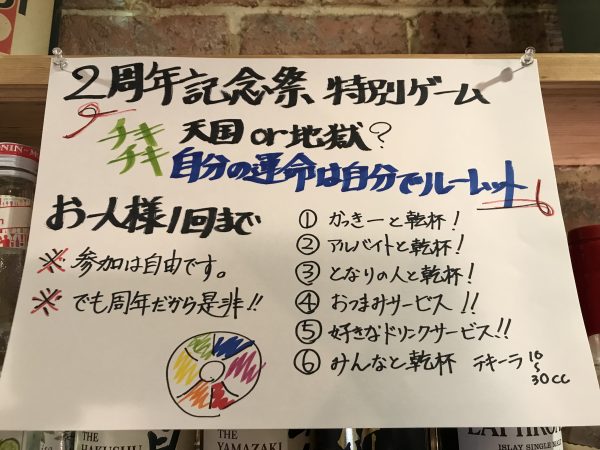 2周年記念祭、特別ゲーム
チキチキ 天国or地獄?
自分の運命は自分でルーレット
お一人様1回まで
※参加は自由です。
※でも周年だから是非!!
① かっきーと乾杯!
② アルバイトと乾杯!
③ となりの人と乾杯!
④ おつまみサービス!!
⑤ 好きなドリンクサービス!!
⑥ みんなと乾杯 テキーラ 10~30cc
THE
HAKUSHU
THE
YAMAZAKI
ISLAY SINGLE